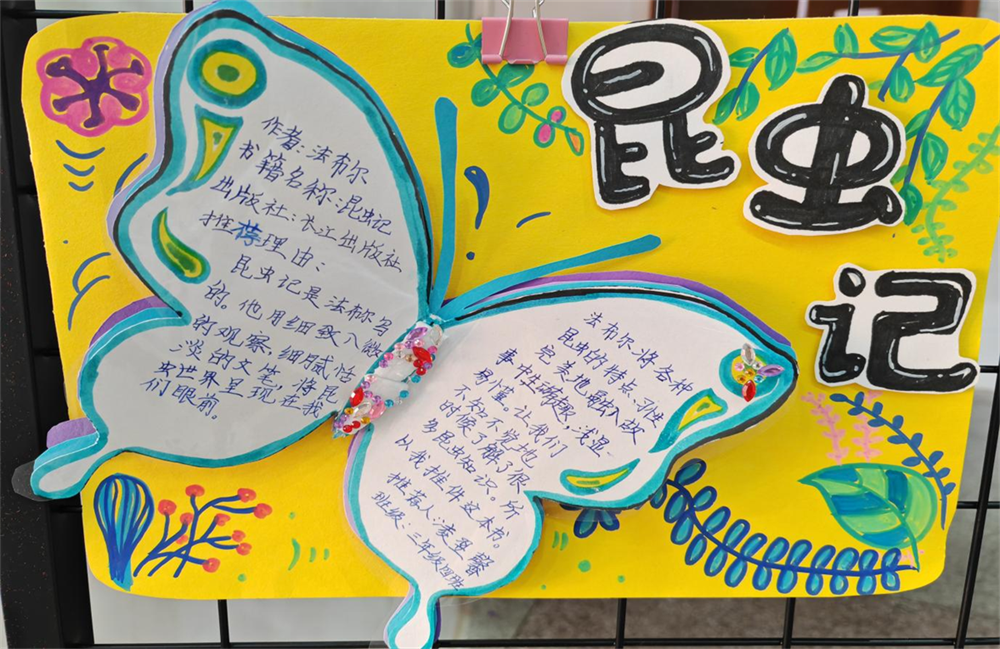 昆虫记
作者:法布尔
书籍名称:昆虫记
出版社:长江出版社
推荐理由:
昆虫记是法布尔写
的。他用细致入微
的观察,细腻恬
淡的文笔,将昆
虫世界呈现在我
们眼前。
法布尔将各种
昆虫的特点、习性
完美地融入故
事中生硕趣,浅显
易懂。让我们
不知不觉地
的时候了解了很
多昆虫知识。所
以我推件这本书。
推荐人:凌
班级:三年级四班